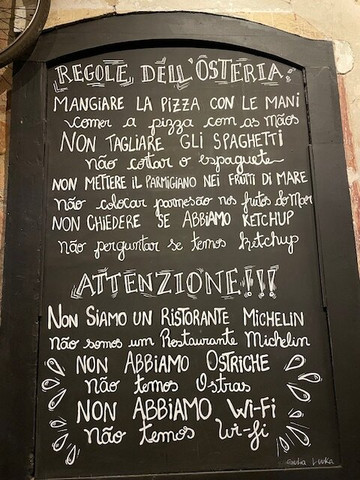 REGOLE DELL'OSTERIA:
MANGIARE LA PIZZA CON LE MANI
comer a pizza com as mãos
NON TAGLIARE GLI SPAGHETTI
não cortar o espaguete
NON METTERE IL PARMIGIANO NEI FRUTTI DI MARE
não colocar parmesão nos frutos do Mar
NON CHIEDERE SE ABBIAMO KETCHUP
não perguntar se temos ketchup
ATTENZIONE!!!
NON SIAMO UN RISTORANTE MICHELIN
não somos um Restaurante Michelin
NON ABBIAMO OSTRICHE
não temos Ostras
NON ABBIAMO Wi-Fi
não temos Wi-fi